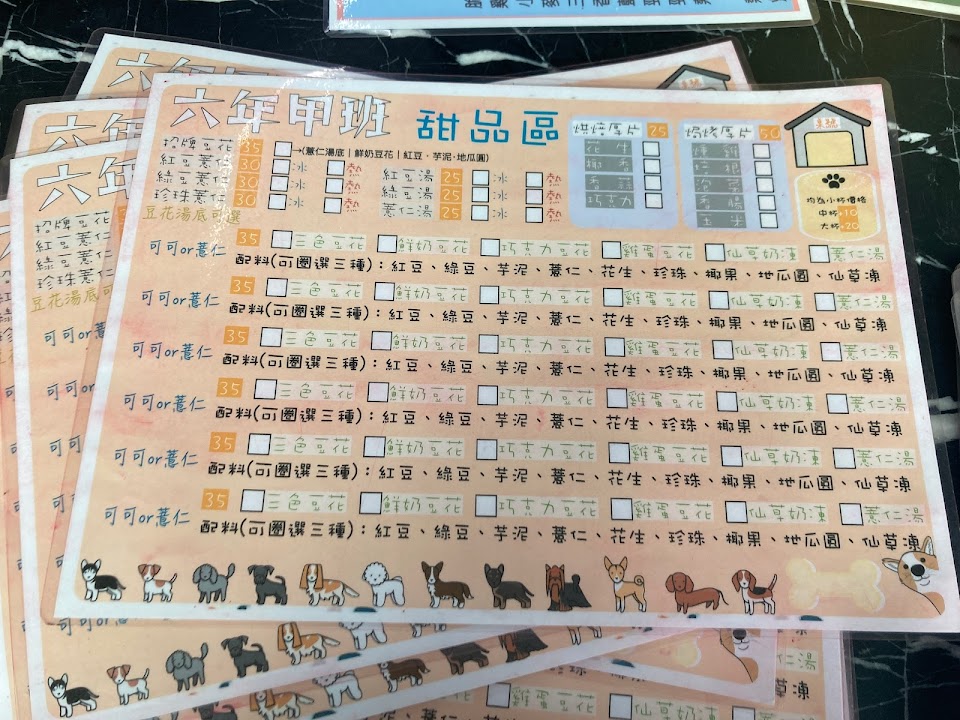 六年甲班 甜品區
招牌豆花 35 →(薏仁湯底｜鮮奶豆花｜紅豆．芋泥．地瓜圓)
紅豆薏仁 30 冰 熱
綠豆薏仁 30 冰 熱
珍珠薏仁 30 冰 熱
豆花湯底可選
紅豆湯 25 冰 熱
綠豆湯 25 冰 熱
薏仁湯 25 冰 熱
烘烤厚片 25
花生
椰香
香蒜
巧克力
焗烤厚片 50
燻雞
培根
泡芋
香腸
玉米
均為小杯價格
中杯+10
大杯+20
可可or薏仁 35 三色豆花 鮮奶豆花 巧克力豆花 雞蛋豆花 仙草奶凍 薏仁湯
配料(可圈選三種)：紅豆、綠豆、芋泥、薏仁、花生、珍珠、椰果、地瓜圓、仙草凍
可可or薏仁 35 三色豆花 鮮奶豆花 巧克力豆花 雞蛋豆花 仙草奶凍 薏仁湯
配料(可圈選三種)：紅豆、綠豆、芋泥、薏仁、花生、珍珠、椰果、地瓜圓、仙草凍
可可or薏仁 35 三色豆花 鮮奶豆花 巧克力豆花 雞蛋豆花 仙草奶凍 薏仁湯
配料(可圈選三種)：紅豆、綠豆、芋泥、薏仁、花生、珍珠、椰果、地瓜圓、仙草凍
可可or薏仁 35 三色豆花 鮮奶豆花 巧克力豆花 雞蛋豆花 仙草奶凍 薏仁湯
配料(可圈選三種)：紅豆、綠豆、芋泥、薏仁、花生、珍珠、椰果、地瓜圓、仙草凍
可可or薏仁 35 三色豆花 鮮奶豆花 巧克力豆花 雞蛋豆花 仙草奶凍 薏仁湯
配料(可圈選三種)：紅豆、綠豆、芋泥、薏仁、花生、珍珠、椰果、地瓜圓、仙草凍
可可or薏仁 35 三色豆花 鮮奶豆花 巧克力豆花 雞蛋豆花 仙草奶凍 薏仁湯
配料(可圈選三種)：紅豆、綠豆、芋泥、薏仁、花生、珍珠、椰果、地瓜圓、仙草凍
六年
招牌豆花
紅豆薏仁
綠豆薏仁
珍珠薏仁
豆花湯底可
可可or